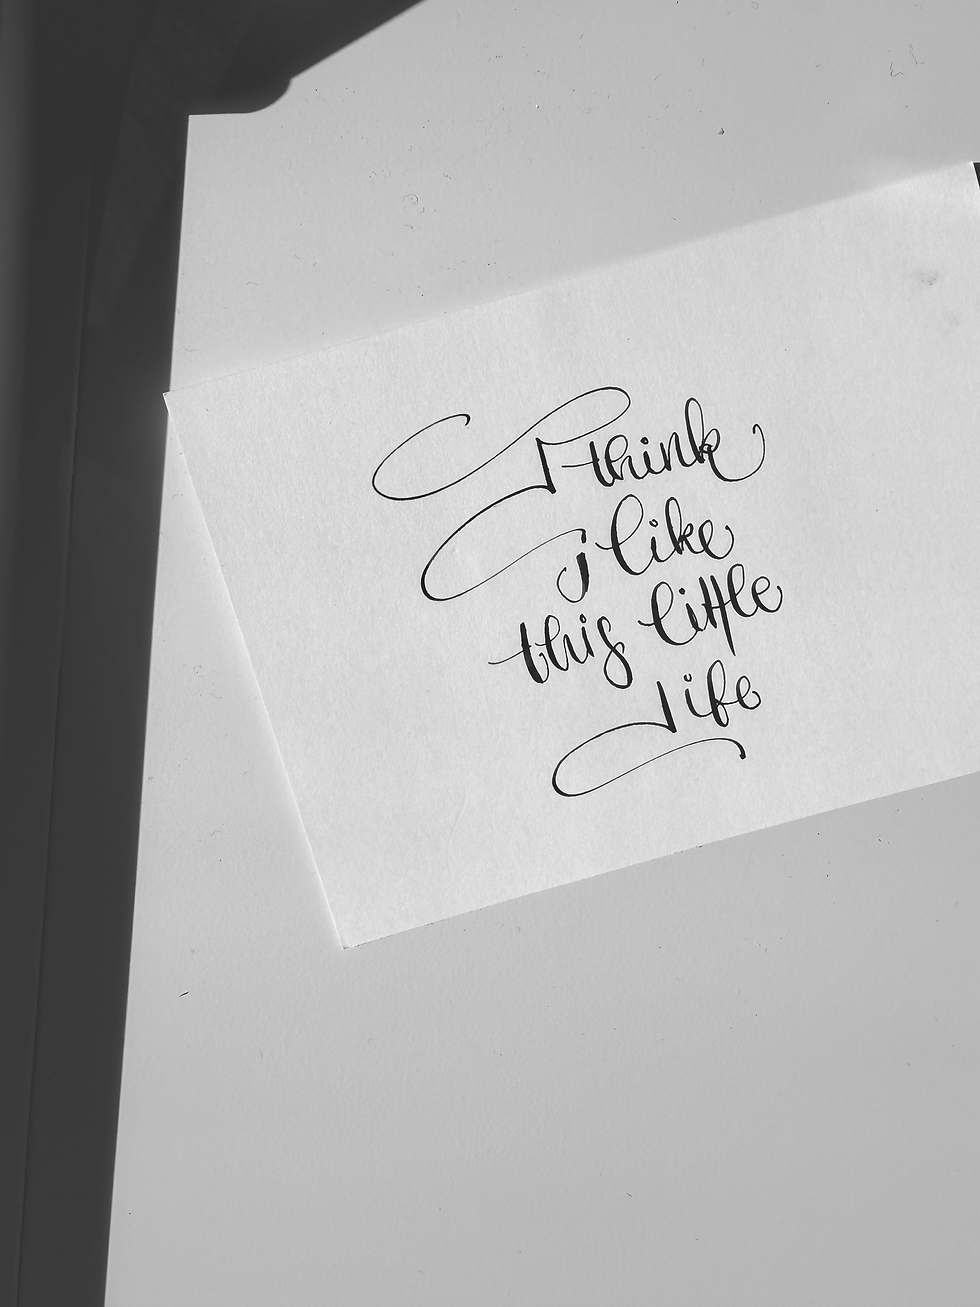 I think
i like
this little
life